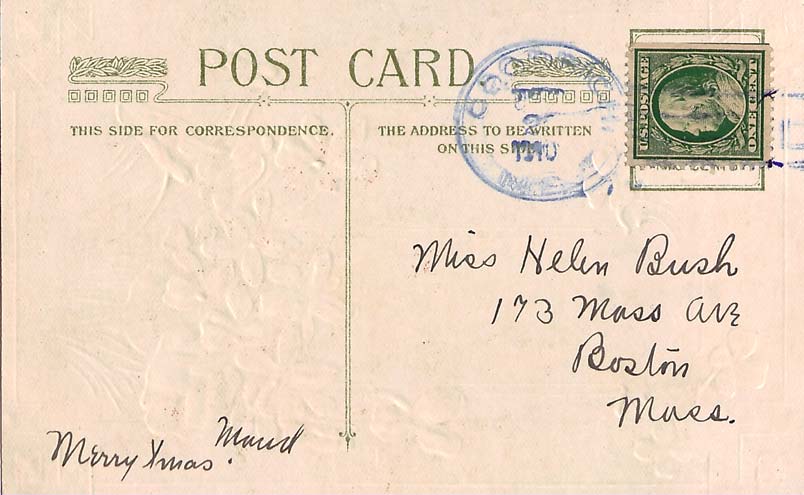 POST CARD
THIS SIDE FOR CORRESPONDENCE.
THE ADDRESS TO BE WRITTEN
ON THIS SIDE.
1910
U.S. POSTAGE
ONE CENT
Miss Helen Bush
173 Mass Ave
Boston
Mass.
Merry Xmas. Maud